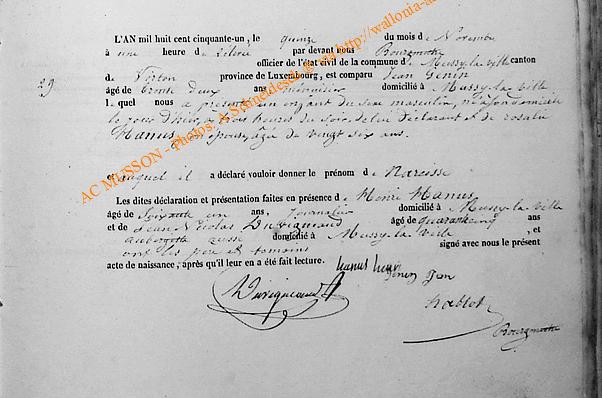 29
L'AN mil huit cent cinquante-un, le quinze du mois de Novembre
à une heure de relevée par devant nous Bourgmestre
officier de l'état civil de la commune de Mussy-la-ville canton
de Virton province de Luxembourg, est comparu Jean Génin
âgé de trente deux ans domicilié à Mussy-la-ville
lequel nous a présenté un enfant du sexe masculin, né à son domicile
le jour d'hier à trois heures du soir, de lui déclarant et de rosalie
Hanus, son épouse, âgée de vingt six ans.
et auquel il a déclaré vouloir donner le prénom de Narcisse
Les dites déclaration et présentation faites en présence de Henri Hanus
âgé de soixante un ans, journalier domicilié à Mussy-la-ville
et de Jean Nicolas Duvigneaud âgé de quarante cinq ans
aubergiste aussi domicilié à Mussy-la-ville, et
ont les père et témoins signé avec nous le présent
acte de naissance, après qu'il leur en a été fait lecture.
hanus henri
Génin Jean
Duvigneaud
Bourgmestre
AC MUSSON - Photos: A. Schneidesch et via http://wallonia-a